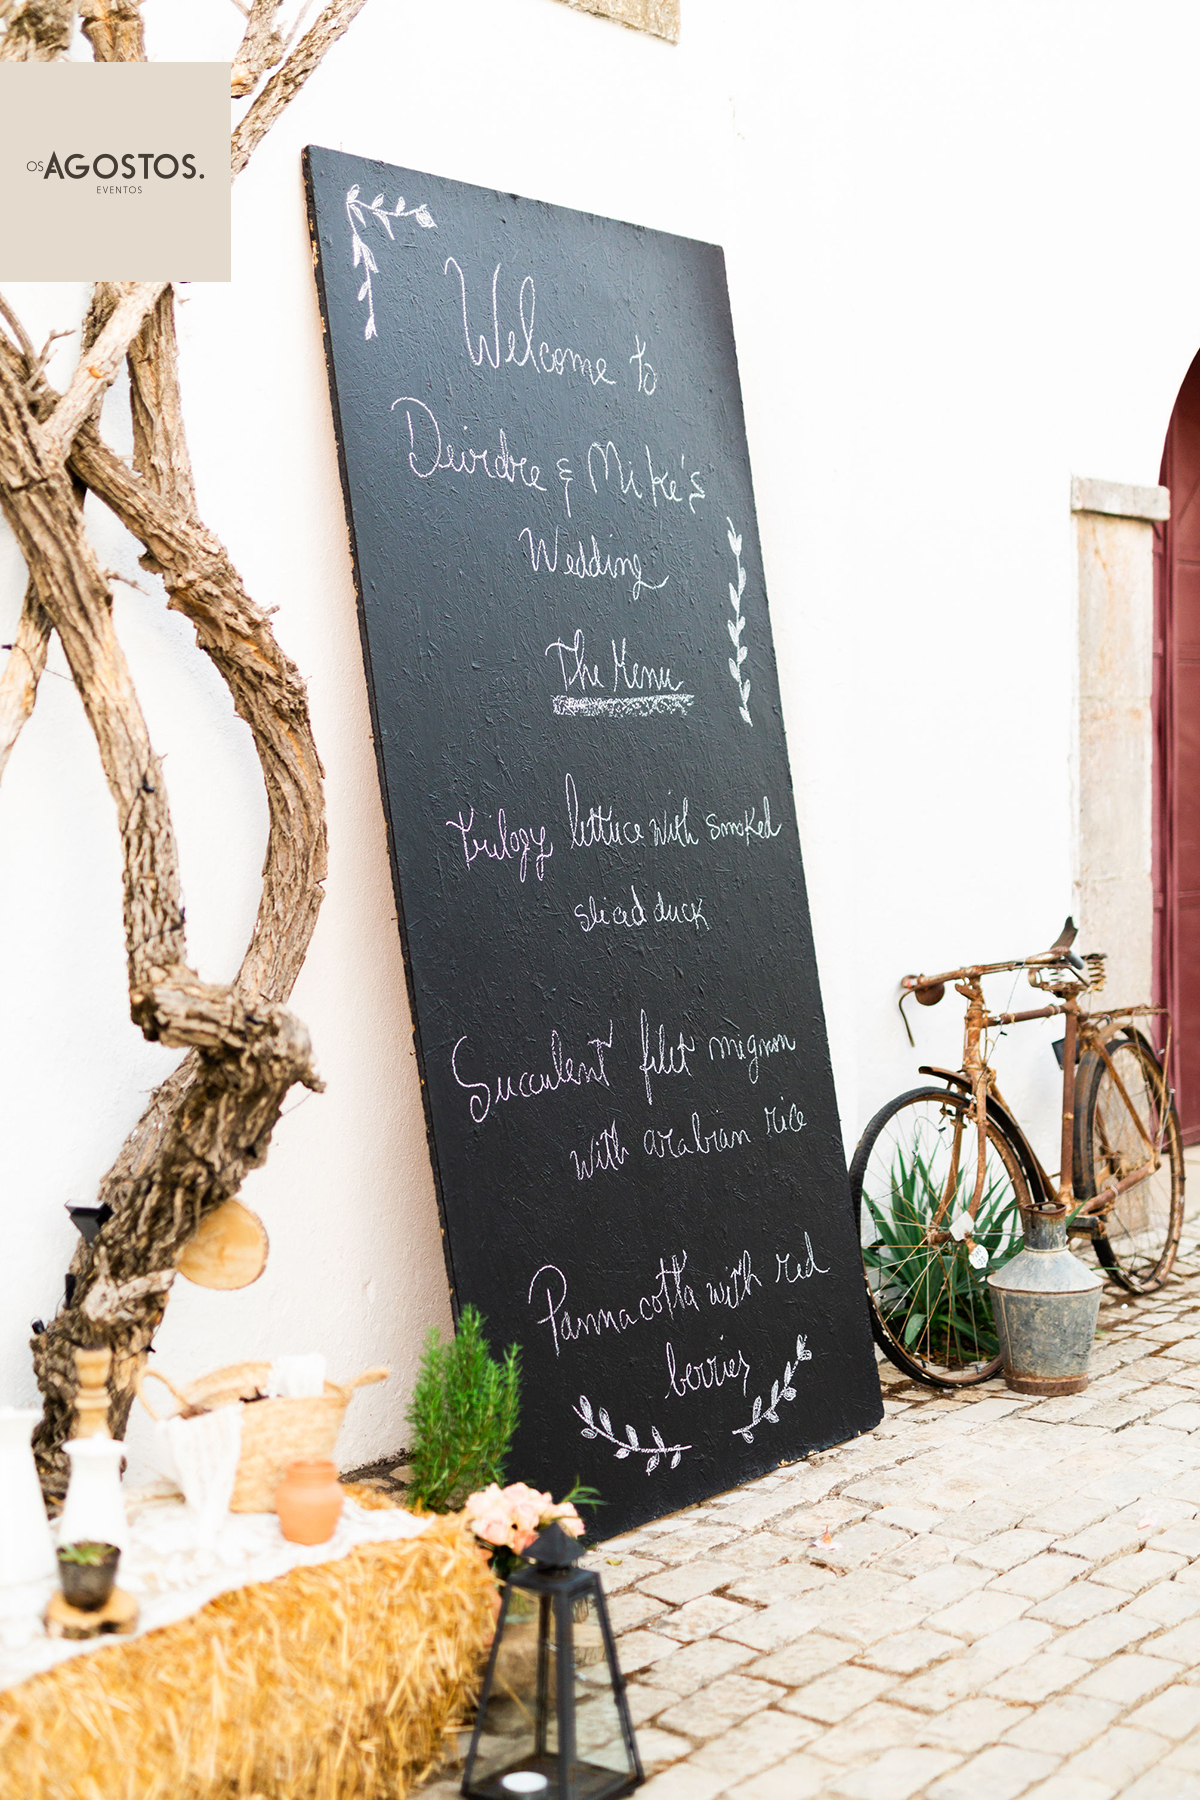 OS AGOSTOS.
EVENTOS
Welcome to
Deirdre & Mike's
Wedding
The Menu
Trilogy lettuce with smoked
sliced duck
Succulent filet mignon
with arabian rice
Pannacotta with red
berries